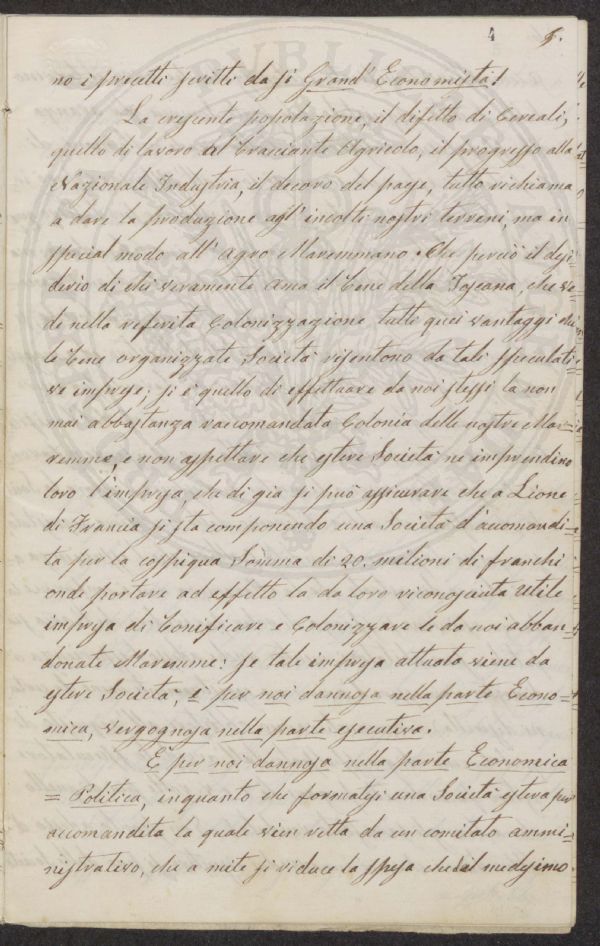 4 5.
no i precetti scritti da sì Grand' Economista!
La crescente popolazione, il difetto di Cereali,
quello di lavoro al bracciante Agricolo, il progresso alla
Nazionale Industria, il decoro del paese, tutto richiama
a dare la produzione agl' incolti nostri terreni, ma in
special modo all' Agro Maremmano. Che perciò il desi=
derio di chi veramente ama il bene della Toscana, che ve=
de nella referita Colonizzazione tutti quei vantaggi che
le bene organizzate Società risentono da tali speculati=
ve imprese; si è quello di effettuare da noi stessi la non
mai abbastanza raccomandata Colonia delle nostre Ma=
remme, e non aspettare che estere Società ne imprendino
loro l'impresa, che di già si può assicurare che a Lione
di Francia si sta componendo una Società d'accomandi=
ta per la cospiqua Somma di 20. milioni di franchi
onde portare ad effetto la da loro riconosciuta utile
impresa di bonificare e Colonizzare le da noi abban=
donate Maremme: se tale impresa attuata viene da
estere Società, è per noi dannosa nella parte Econo=
mica, vergognosa nella parte esecutiva.
È per noi dannosa nella parte Economica
= Politica, inquanto che formatasi una Società estera per
accomandita la quale vien retta da un comitato ammi=
nistrativo, che a mite si riduce la spesa che il medesimo